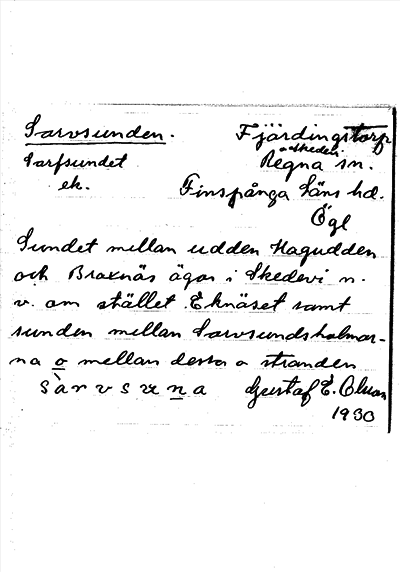 Sarvsunden. Fjärdingstorp
o Skedevi
Sarfsundet Regna sn.
ek. Finspånga läns hd.
Ögl
Sundet mellan udden Hagudden
och Braxnäs ägor i Skedevi n.
v. om stället Eknäset samt
sunden mellan Sarvsundsholmar-
na o mellan dessa o stranden
sàrvsuna Gustaf E. Olsson
1930